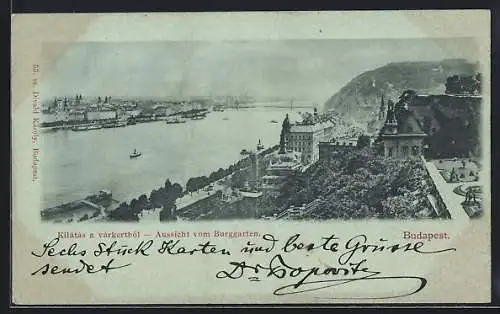 55. sz. Divald Károly, Budapest.
Kilátás a várkertből — Aussicht vom Burggarten. Budapest.
Sechs Stück Karten und beste Grüsse
sendet Dr Topovitz